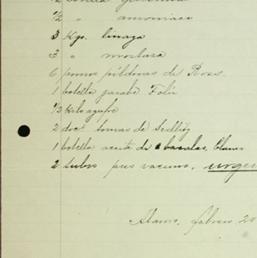 ½ " amoniaco
3 Kgs. linaza
3 " mostaza
6 pomos píldoras de Ross.
1 botella jarabe Follin
½ kilo azufre
2 doc tomas de Sedlitz
1 botella aceite de bacalao, blanco
2 tubos pus vacuno, urge
Alamo, febrero 20